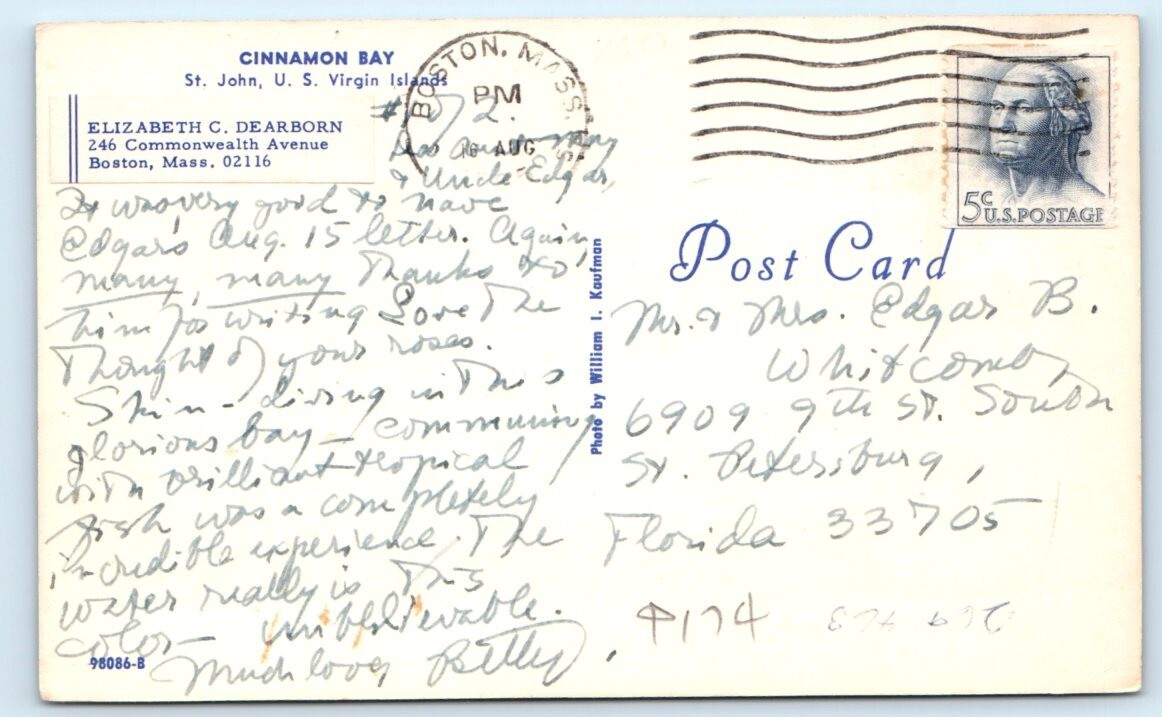 CINNAMON BAY
St. John, U. S. Virgin Islands
ELIZABETH C. DEARBORN
246 Commonwealth Avenue
Boston, Mass. 02116
BOSTON, MASS.
PM
16 AUG
#2.
Dear Aunt May
& Uncle Edgar,
It was very good to have
Edgar's Aug. 15 letter. Again,
many, many thanks to
him for writing. Love the
thought of your roses.
Skin-diving in this
glorious bay – communing
with brilliant tropical
fish was a completely
incredible experience. The
water really is this
color – unbelievable.
Much love, Betty
98086-B
Photo by William I. Kaufman
5c U.S. POSTAGE
Post Card
Mr. & Mrs. Edgar B.
Whitcomb,
6909 9th St. South
St. Petersburg,
Florida 33705
P174